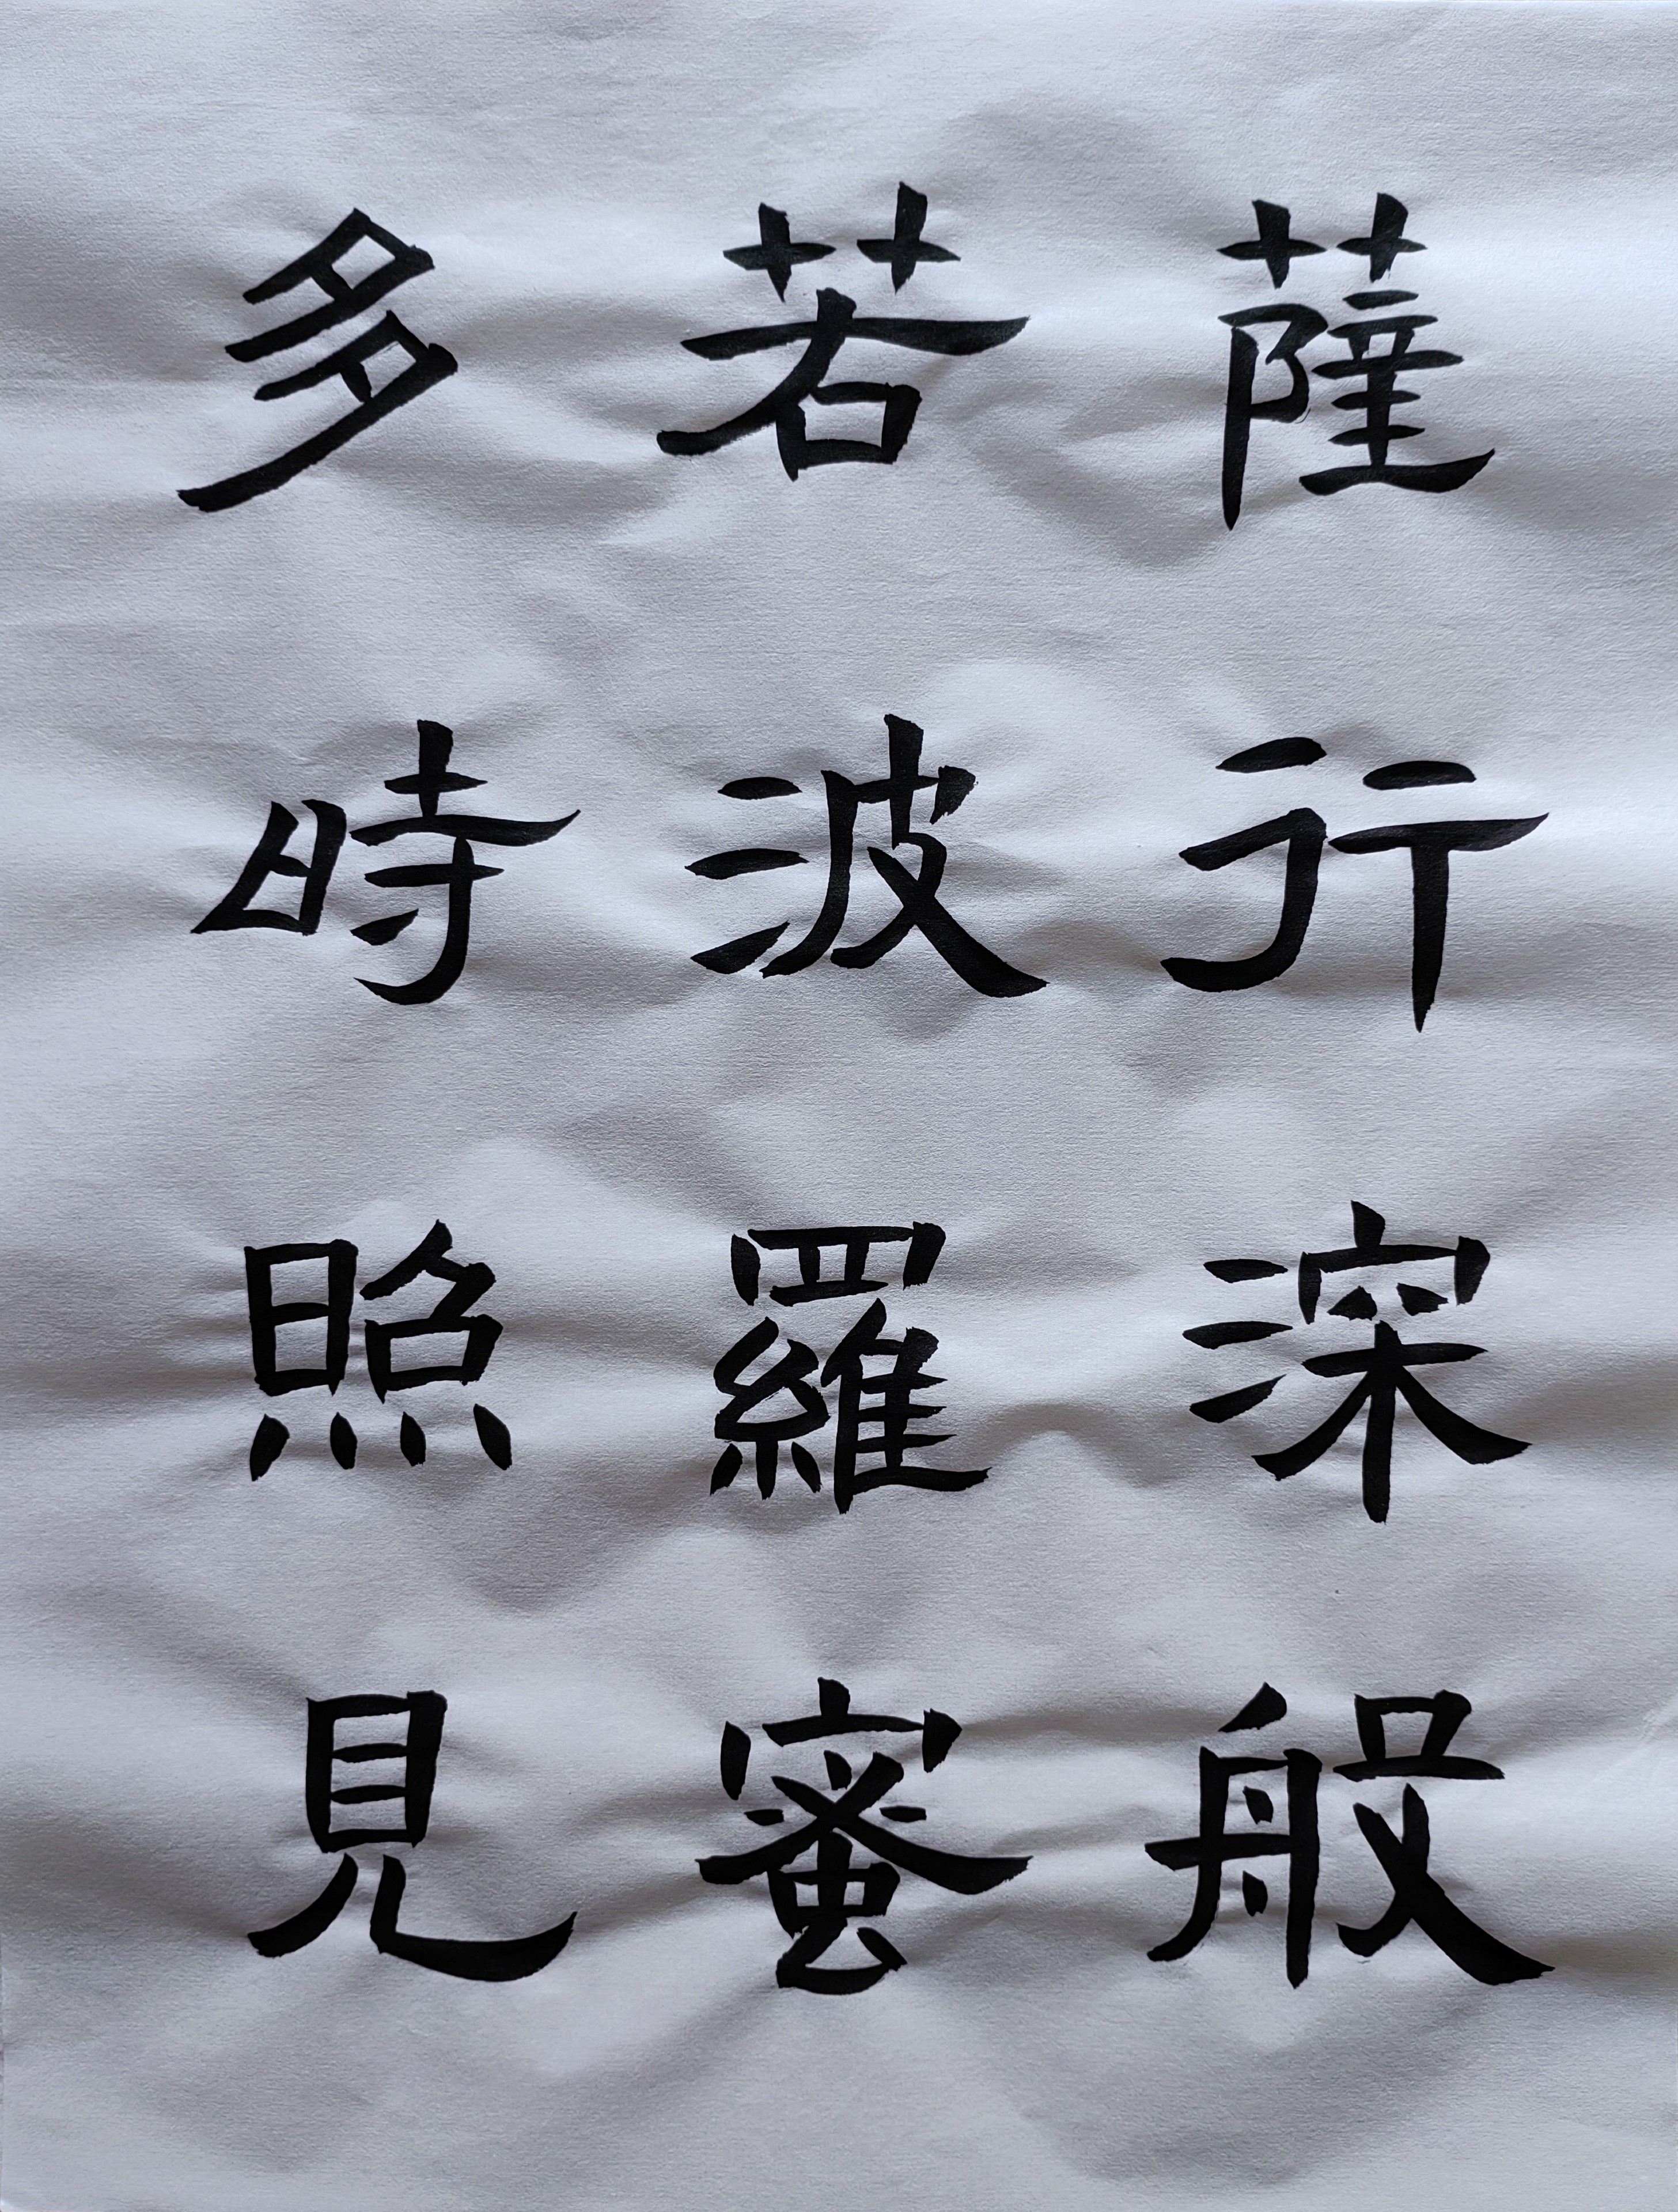 薩行深般
若波羅蜜
多時照見